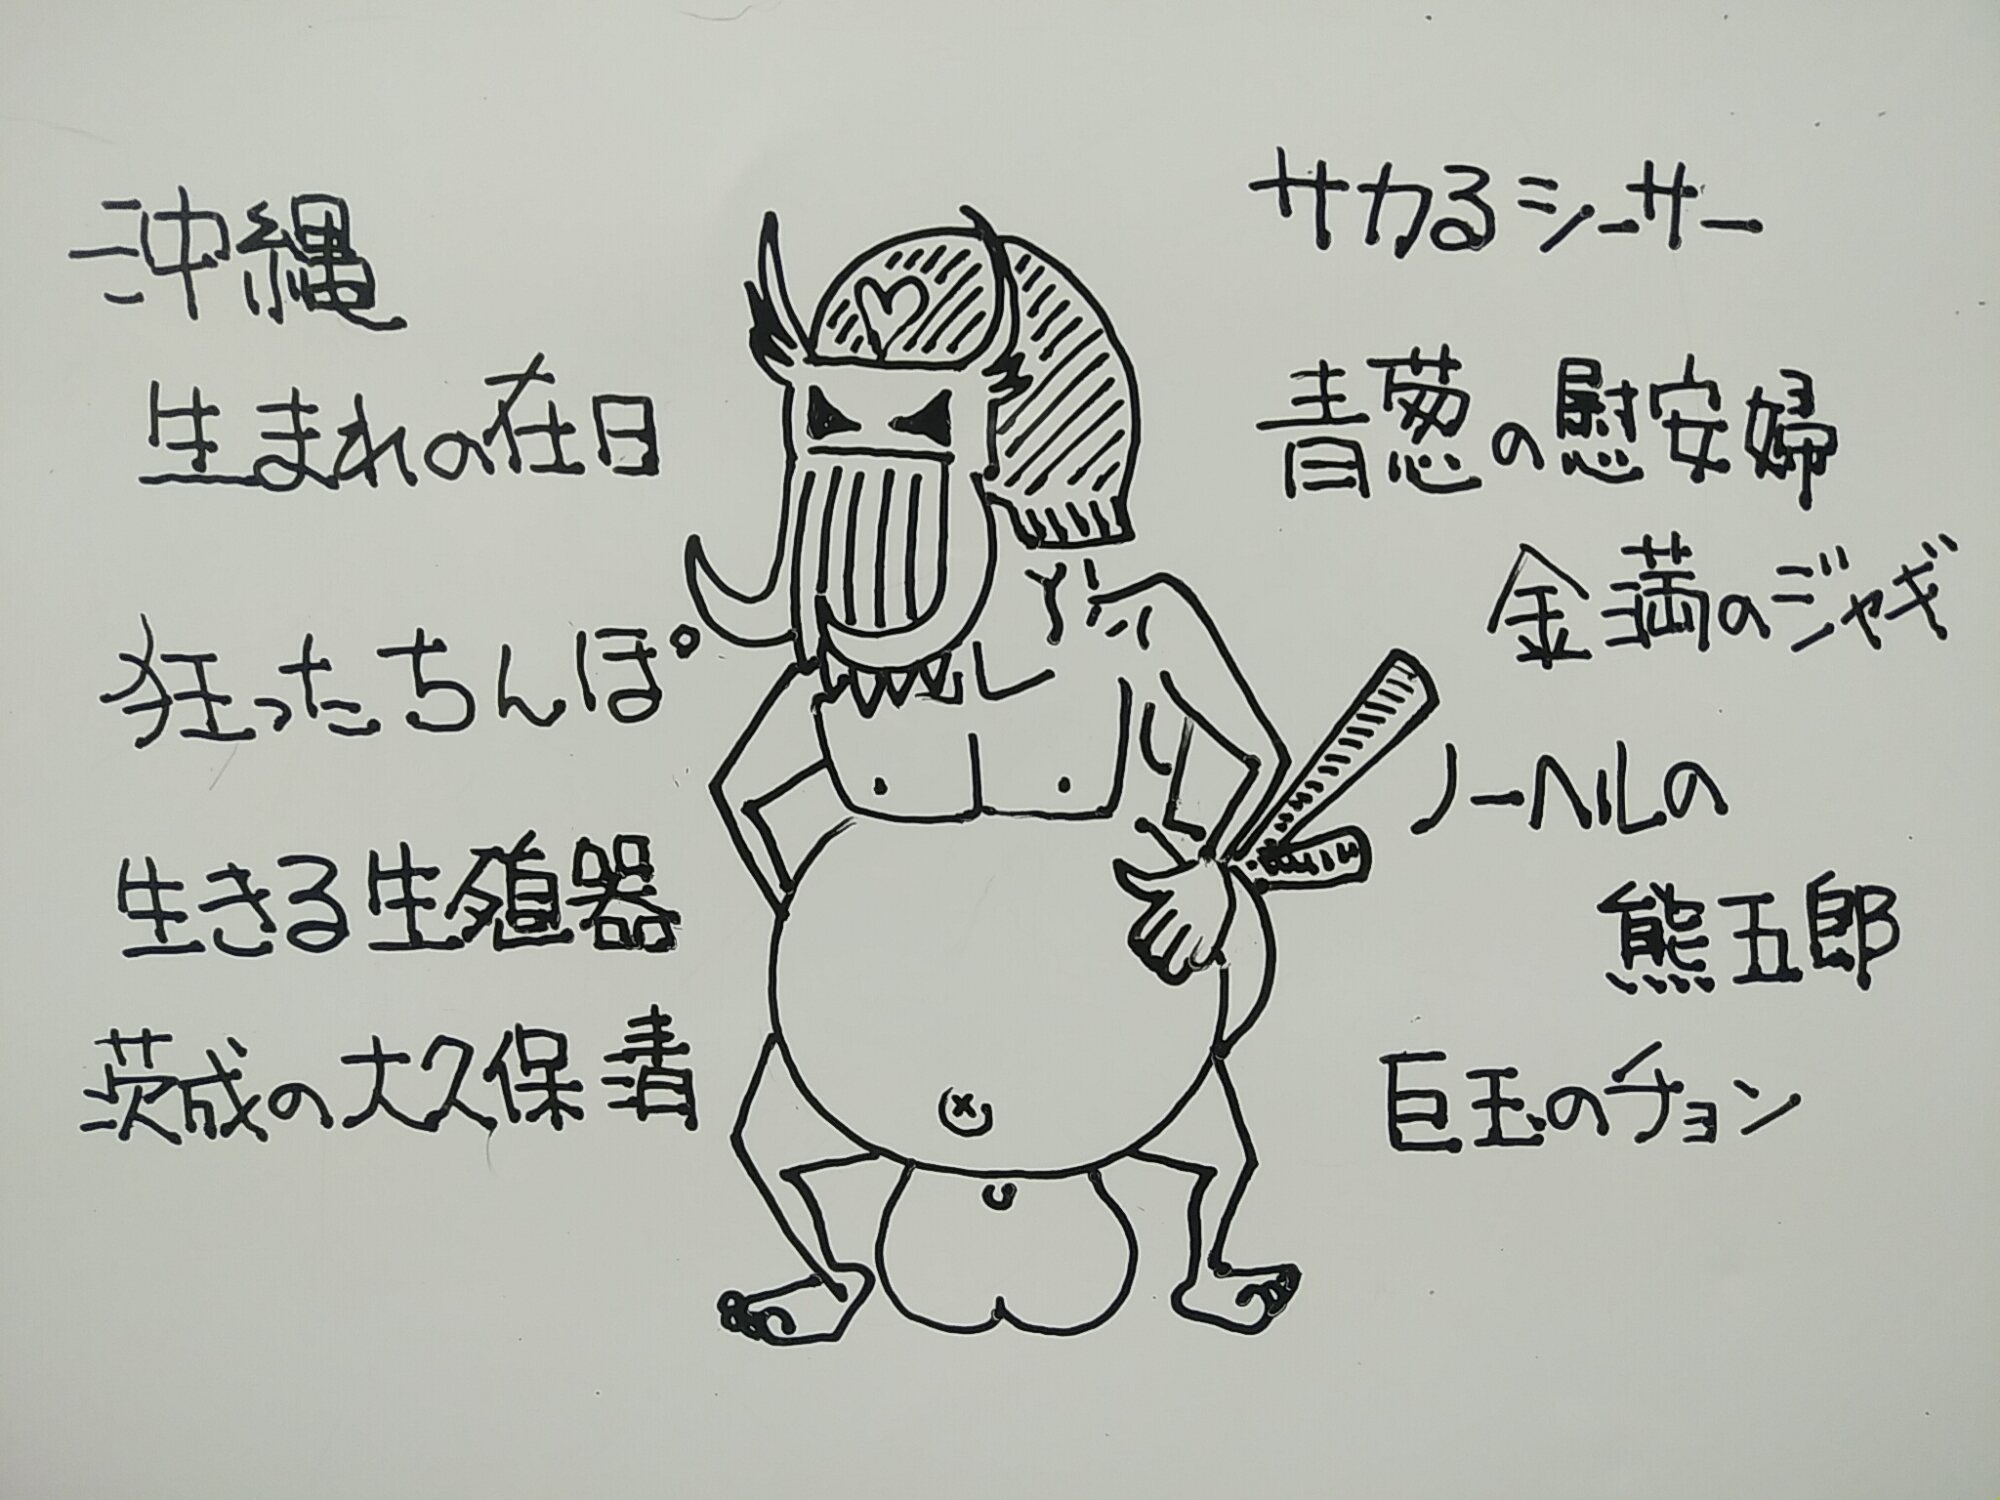 沖縄
生まれの在日
狂ったちんぽ
生きる生殖器
茨城の大久保清
サカるシーサー
青葱の慰安婦
金満のジャギ
ノーヘルの
熊五郎
巨玉のチョン